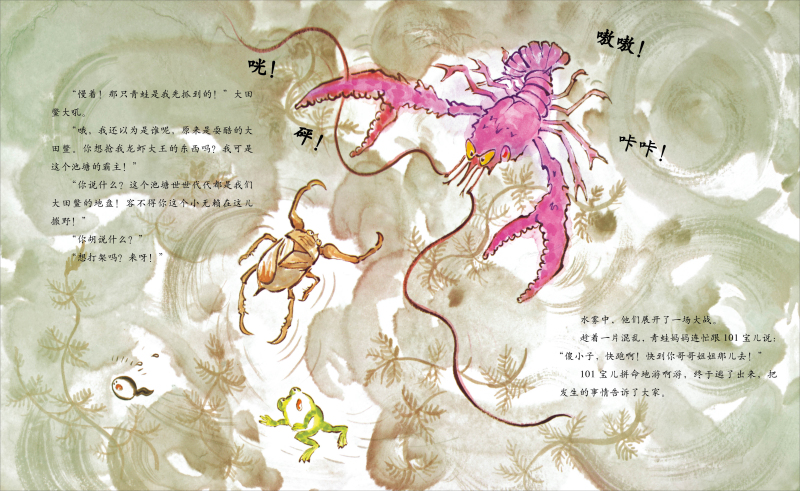 “慢着！那只青蛙是我先抓到的！”大田
鳖大吼。
“哦，我还以为是谁呢，原来是耍酷的大
田鳖。你想抢我龙虾大王的东西吗？我可是
这个池塘的霸主！”
“你说什么？这个池塘世世代代都是我们
大田鳖的地盘！容不得你这个小无赖在这儿
撒野！”
“你胡说什么？”
“想打架吗？来呀！”
咣！
砰！
嗷嗷！
咔咔！
水雾中，他们展开了一场大战。
趁着一片混乱，青蛙妈妈连忙跟101宝儿说：
“傻小子，快跑啊！快到你哥哥姐姐那儿去！”
101宝儿拼命地游啊游，终于逃了出来，把
发生的事情告诉了大家。